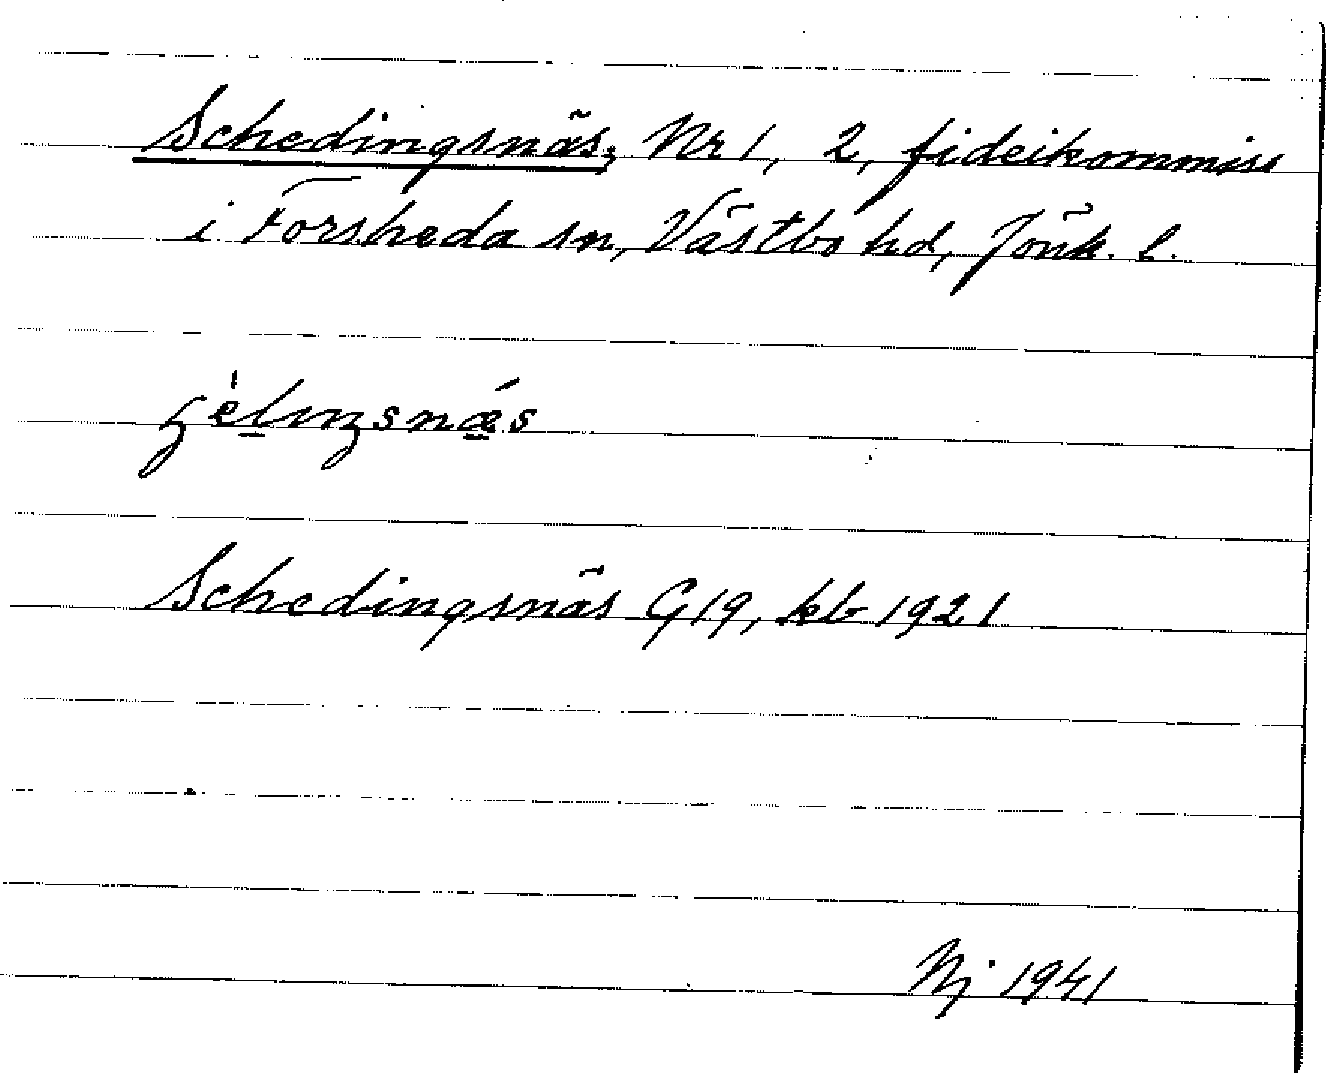 Schedingsnäs, Nr 1, 2, fideikommiss
i Forsheda sn, Västbo hd, Jönk. l.
Schedingsnäs G19, kb 1921
Nj 1941